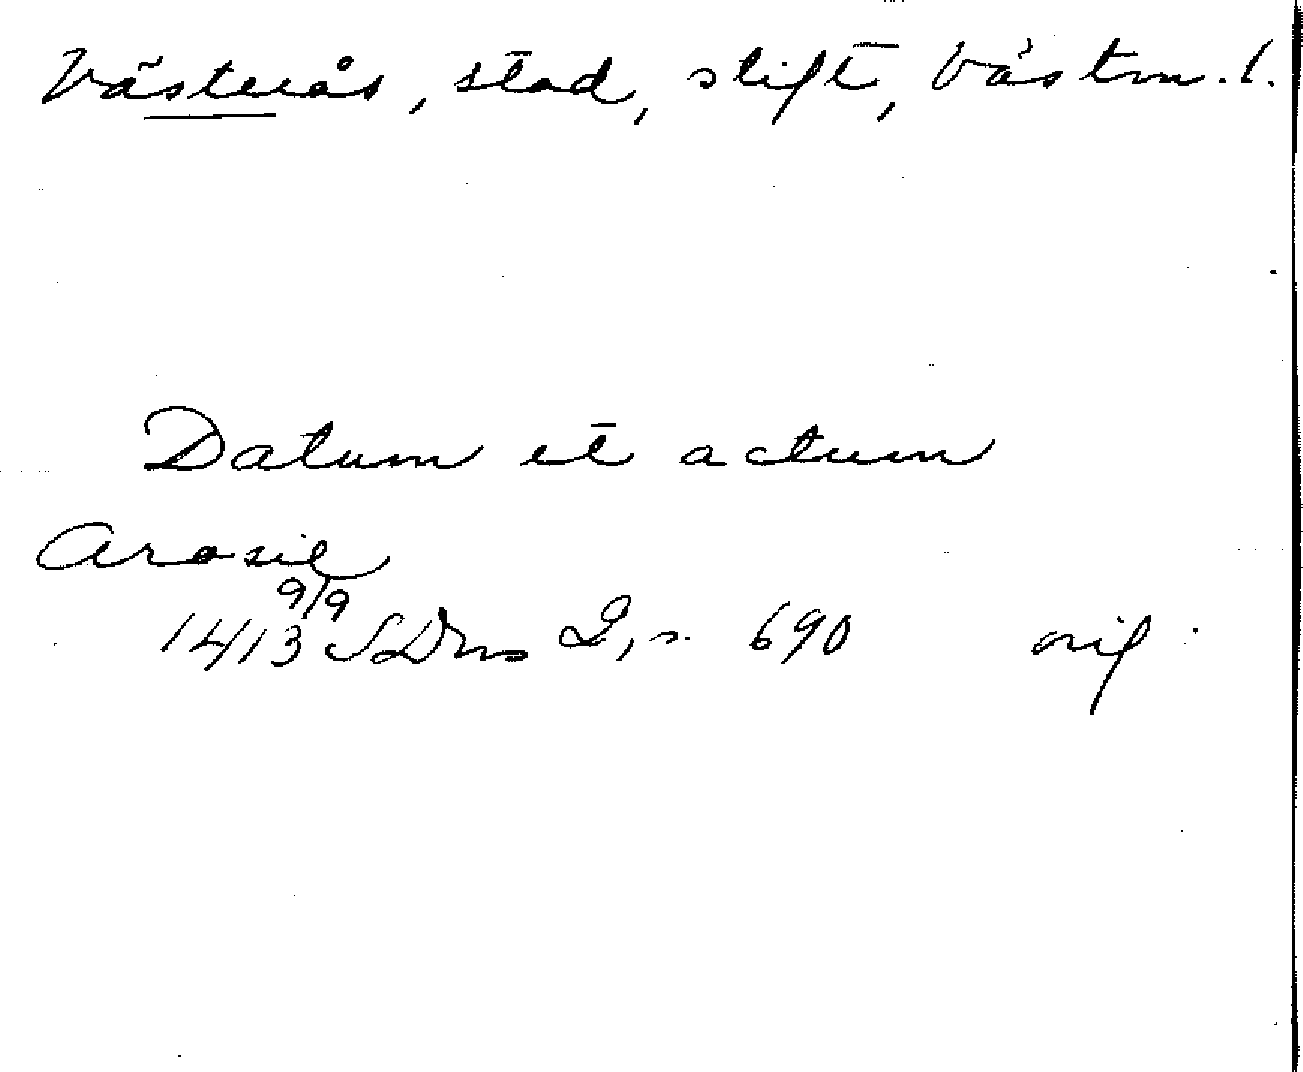 Västerås, stad, stift, Västm. l.
Datum et actum
Arosie
1413 9/9 SDns 2, s. 690 orig.